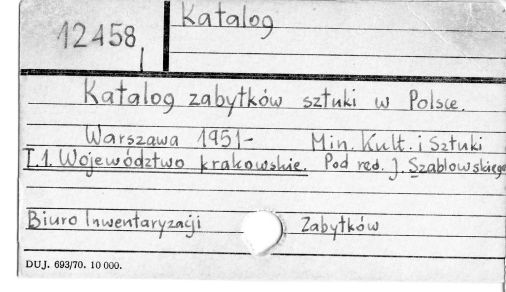 12458
Katalog
Katalog zabytków sztuki w Polsce.
Warszawa 1951- Min. Kult. i Sztuki
T.1. Województwo krakowskie. Pod red. J. Szablowskiego
Biuro Inwentaryzacji Zabytków
DUJ. 693/70. 10 000.